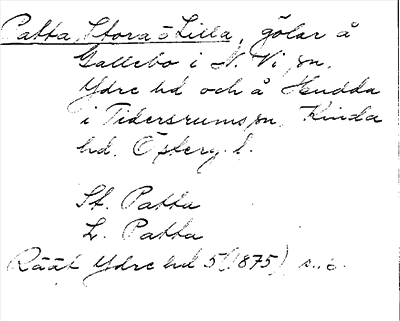 Patta, Stora o Lilla, gölar å
Gallebo i N. Vi sn,
Ydre hd och å Hudda
i Tidersrums sn, Kinda
hd. Österg. l.
St. Patta
L. Patta
Rääf Ydre hd 5 (1875), s.